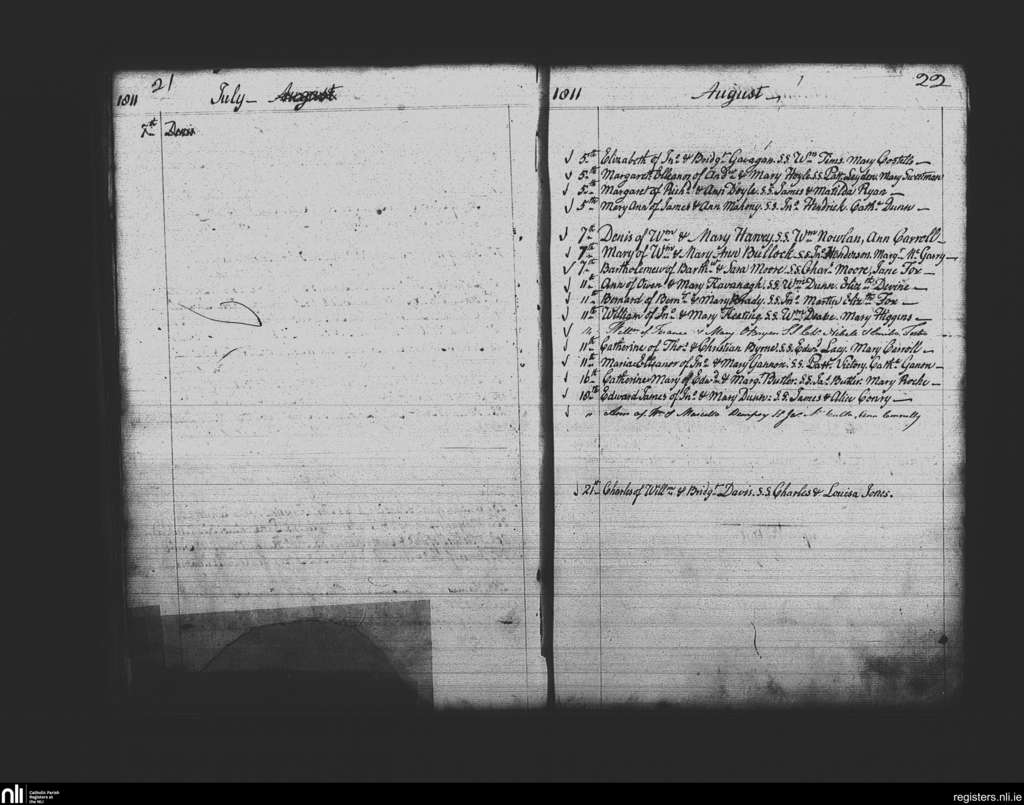 21
1811 July - August
7th Denis
22
1811 August -
5th Elizabeth of Jno. & Bridgt. Gavagan. S.S. Wm. Tims. Mary Costello -
5th Margaret Elleanor of Andw. & Mary Hoyle. S.S. Patt. Leyden. Mary Sweetman
5th Margaret of Richd. & Ann Doyle. S.S. James & Matilda Ryan -
5th Mary Ann of James & Ann Mahony. S.S. Jno. Hendrick. Cathe. Dunn -
7th Denis of Wm. & Mary Harvey. S.S. Wm. Nowlan, Ann Carroll -
7th Mary of Wm. & Mary Ann Bullock. S.S. Jno. Henderson. Margt. Mc.Garry -
7th Bartholemew of Barthw. & Sara Moore. S.S. Chars. Moore, Jane Fox -
11th Ann of Owen & Mary Kavanagh. S.S. Wm. Dunn. Elizth. Devine -
11th Bernard of Bernd. & Mary Brady. S.S. Jno. Martin Elizth. Fox -
11th William of Jno. & Mary Keating. S.S. Wm. Deake. Mary Higgins -
of & Mary
11th Catherine of Thos. & Christian Byrne. S.S. Edwd. Lacy. Mary Carroll -
11th Maria Elleanor of Jno. & Mary Gannon. S.S. Patt. Victory. Cathe. Ganon -
16th Catherine Mary of Edwd. & Margt. Butler. S.S. Jas. Butler. Mary Roche -
18th Edward James of Jno. & Mary Dunn. S.S. James & Alice Conry -
" of Wm. & Marcella Dempsy Ann Connolly
21st Charles of Willm. & Bridgt. Davis. S.S. Charles & Louisa Jones.
nli
Catholic Parish
Registers at
the NLI
registers.nli.ie